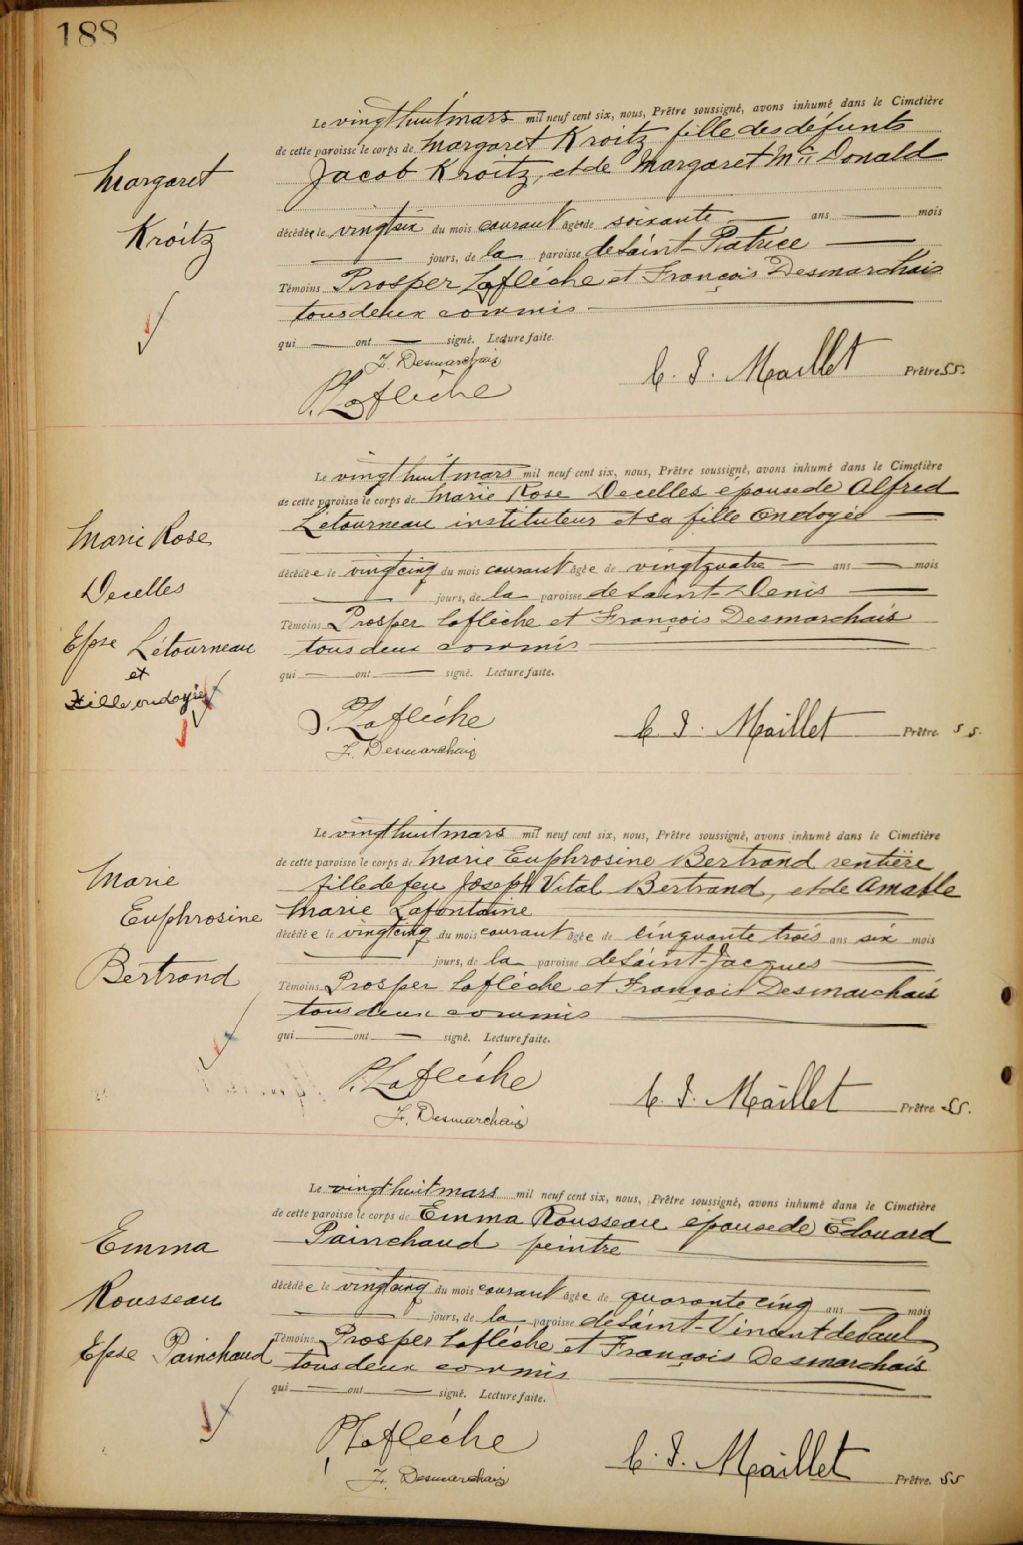 188
Margaret
Kroitz
Le vingthuit mars mil neuf cent six, nous, Prêtre soussigné, avons inhumé dans le Cimetière
de cette paroisse le corps de Margaret Kroitz fille des défunts
Jacob Kroitz, et de Margaret Mc Donald
décédée le vingtsix du mois courant âgée de soixante — ans — mois
— jours, de la paroisse de Saint-Patrice —
Témoins Prosper Laflèche et François Desmarchais
tous deux commis
qui — ont — signé. Lecture faite.
F. Desmarchais
P. Laflèche
C. J. Maillet Prêtre SS.
Marie Rose
Decelles
Epse Létourneau
et
Fille ondoyée
Le vingthuit mars mil neuf cent six, nous, Prêtre soussigné, avons inhumé dans le Cimetière
de cette paroisse le corps de Marie Rose Decelles épouse de Alfred
Létourneau instituteur et sa fille ondoyée —
décédée le vingtcinq du mois courant âgée de vingtquatre — ans — mois
— jours, de la paroisse de Saint-Denis —
Témoins Prosper Laflèche et François Desmarchais
tous deux commis
qui — ont — signé. Lecture faite.
P. Laflèche
F. Desmarchais
C. J. Maillet Prêtre. SS.
Marie
Euphrosine
Bertrand
Le vingthuit mars mil neuf cent six, nous, Prêtre soussigné, avons inhumé dans le Cimetière
de cette paroisse le corps de Marie Euphrosine Bertrand rentière
fille de feu Joseph Vital Bertrand, et de Amable
Marie Lafontaine
décédée le vingtcinq du mois courant âgée de cinquante trois ans six mois
— jours, de la paroisse de Saint-Jacques —
Témoins Prosper Laflèche et François Desmarchais
tous deux commis
qui — ont — signé. Lecture faite.
P. Laflèche
F. Desmarchais
C. J. Maillet Prêtre SS.
Emma
Rousseau
Epse Painchaud
Le vingthuit mars mil neuf cent six, nous, Prêtre soussigné, avons inhumé dans le Cimetière
de cette paroisse le corps de Emma Rousseau épouse de Edouard
Painchaud peintre
décédée le vingtcinq du mois courant âgée de quarante cinq ans — mois
— jours, de la paroisse de Saint-Vincent de Paul
Témoins Prosper Laflèche et François Desmarchais
tous deux commis
qui — ont — signé. Lecture faite.
P. Laflèche
F. Desmarchais
C. J. Maillet Prêtre. SS